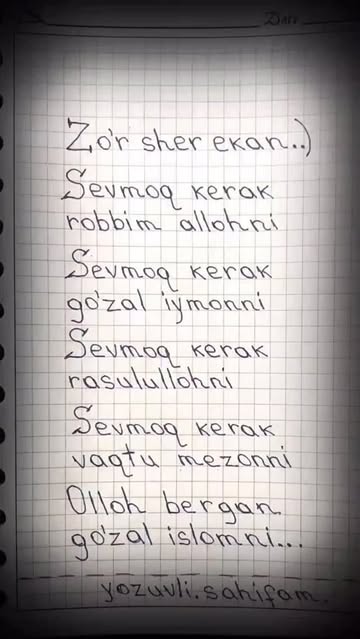 Date
Zo'r sher ekan..)
Sevmoq kerak
robbim allohni
Sevmoq kerak
go'zal iymonni
Sevmoq kerak
rasulullohni
Sevmoq kerak
vaqtu mezonni
Olloh bergan
go'zal islomni...
yozuvli.sahifam.